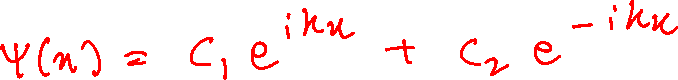 ψ(x) = C₁ e^{ikx} + C₂ e^{-ikx}